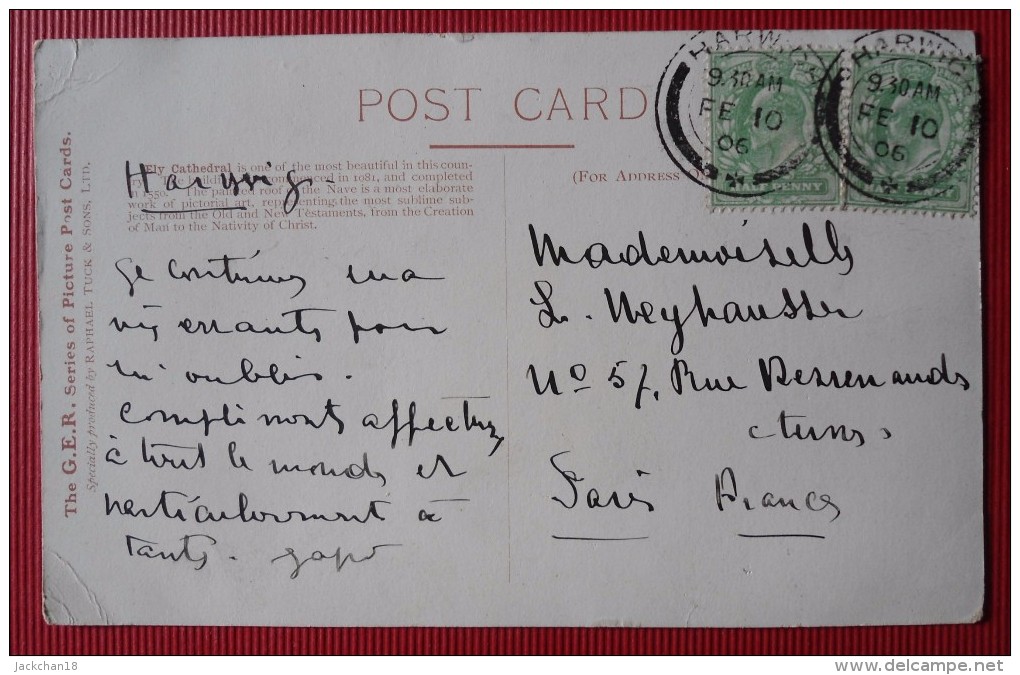 POST CARD
The G.E.R. Series of Picture Post Cards.
Specially produced by RAPHAEL TUCK & SONS, LTD.
Ely Cathedral is one of the most beautiful in this coun-
commenced in 1081, and completed
roof of the Nave is a most elaborate
work of pictorial art, representing the most sublime sub-
jects from the Old and New Testaments, from the Creation
of Man to the Nativity of Christ.
(FOR ADDRESS
HARWICH
9.30 AM
FE 10
06
HARWICH
9.30 AM
FE 10
06
HALF PENNY
Harwig
Je continue ma
vie errante pour
m'oublier.
Compliments affectueux
à tout le monde et
particulièrement à
tante.
Mademoiselle
L. Weyhausser
No 57, Rue Desrenaudes
Ternes
Paris France
jackchan18
www.delcampe.net